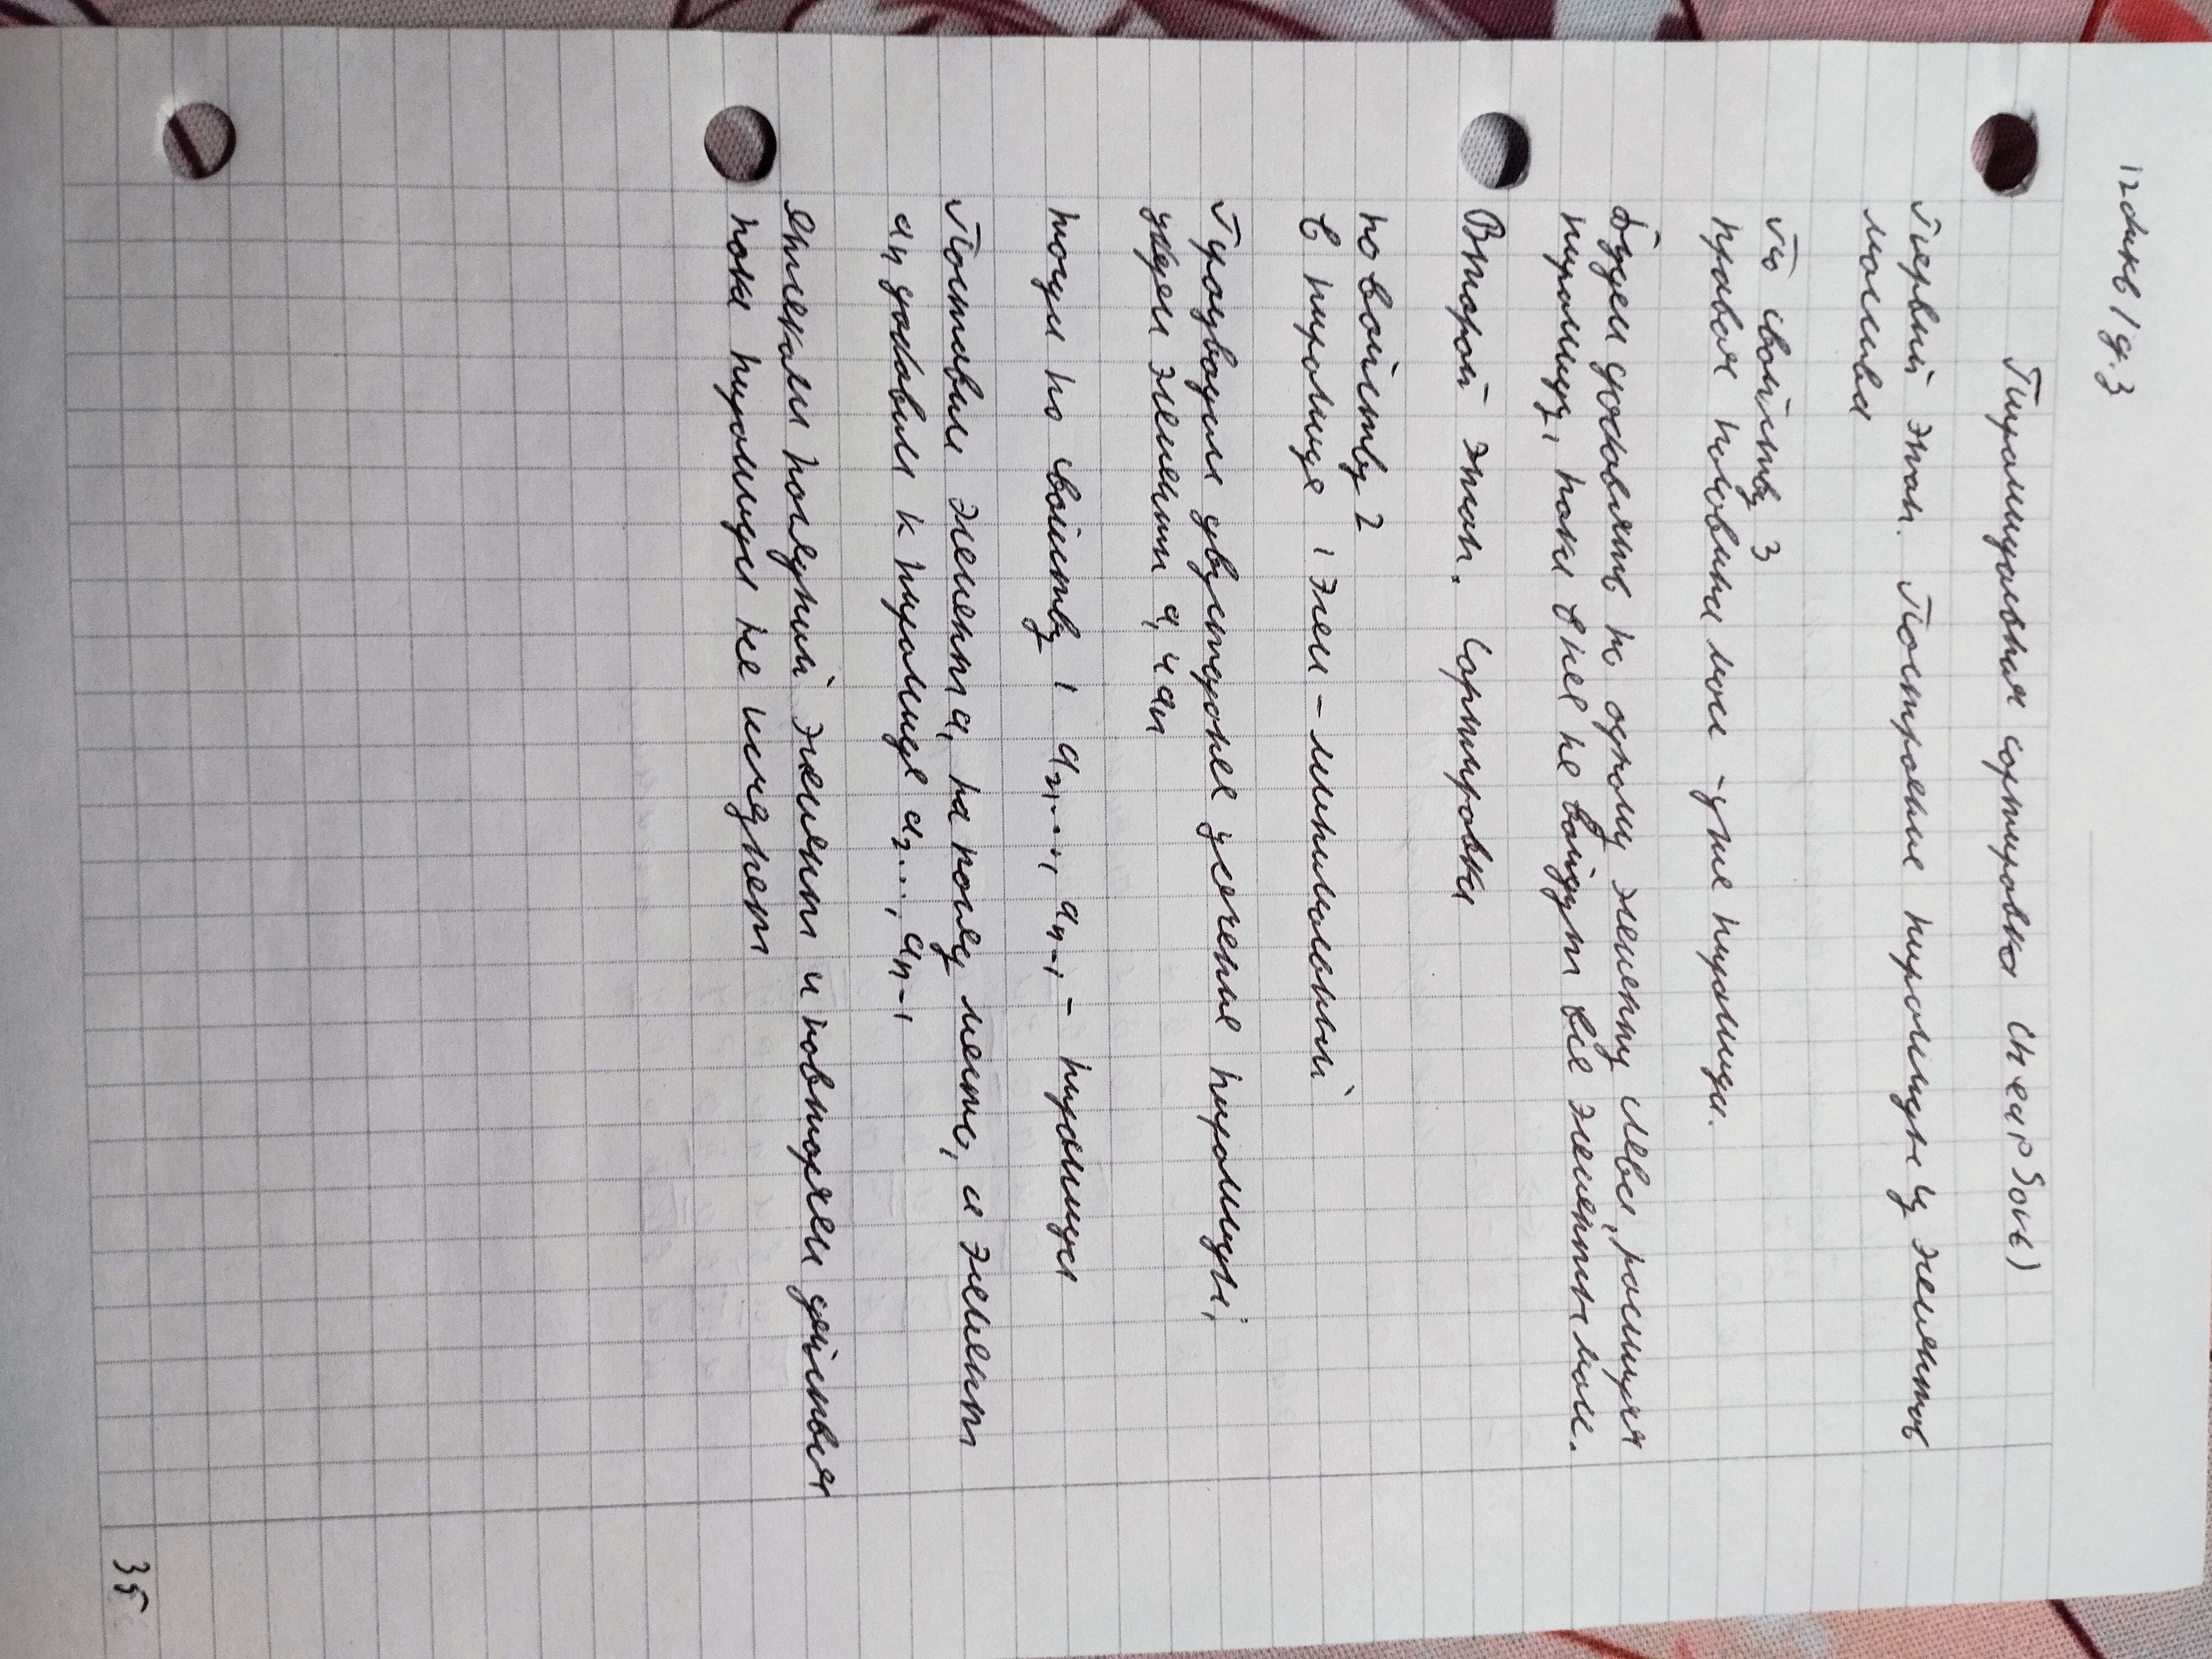 Пирамидальная сортировка (HeapSort)
Первый этап. Построение пирамиды из элементов
массива
По свойству 3
правая половина мас - уже пирамида.
Будем добавлять по одному элементу слева, расширяя
пирамиду, пока в нее не войдут все элементы мас.
Второй этап. Сортировка
по свойству 2
в пирамиде 1 элем - минимальный
Производим двустороннее усечение пирамиды,
убрав элементы a₁ и aₙ
тогда по свойству 1 a₂,..., aₙ₋₁ - пирамида
Поставим элемент a₁ на послед место, а элемент
aₙ добавим к пирамиде a₂..., aₙ₋₁
отсекаем последний элемент и повторяем действия
пока пирамида не исчезнет
35